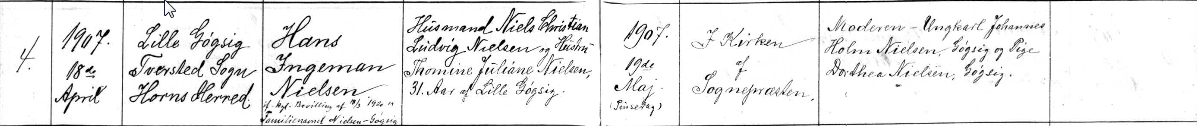 4.
1907.
18de
April
Lille Gøgsig
Tversted Sogn
Horns Herred.
Hans
Ingeman
Nielsen
if. kgl. Bevilling af
Familienavnet Nielsen-Gøgsig
Husmand Niels Christian
Ludvig Nielsen og Hustru
Thomine Juliane Nielsen,
31. Aar af Lille Gøgsig.
1907.
19de
Maj.
(Pinsedag)
I Kirken
af
Sognepræsten.
Moderen - Ungkarl Johannes
Holm Nielsen, Gøgsig og Pige
Dorthea Nielsen, Gøgsig.